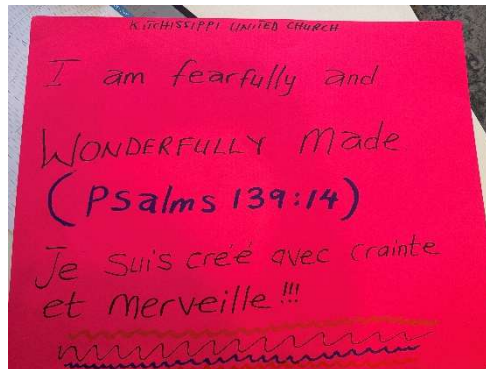 KITCHISSIPPI UNITED CHURCH
I am fearfully and
WONDERFULLY made
(Psalms 139:14)
Je suis créé avec crainte
et merveille!!!